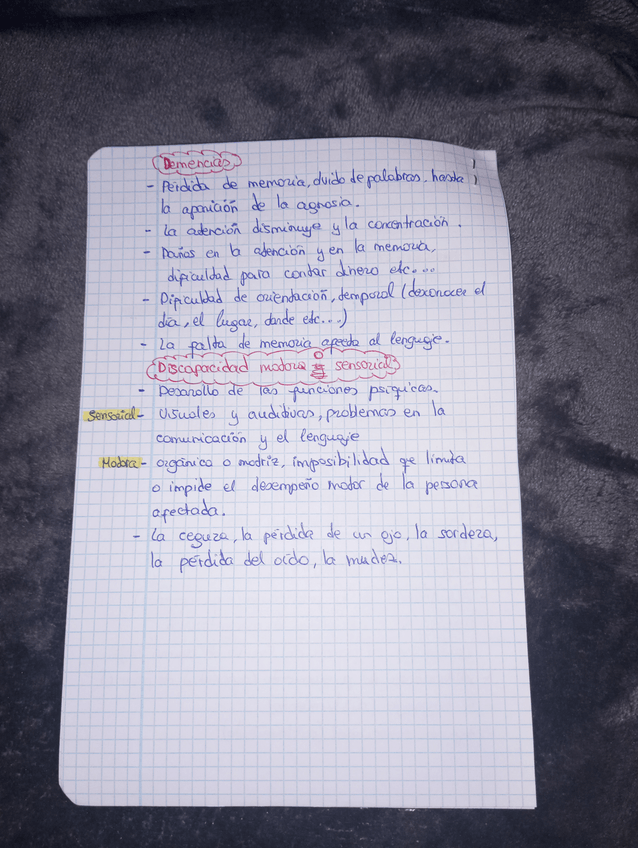 Demencias
- Pérdida de memoria, olvido de palabras, hasta
la aparición de la agnosia.
- La atención disminuye y la concentración.
- Daños en la atención y en la memoria,
dificultad para contar dinero etc....
- Dificultad de orientación, temporal (desconocer el
día, el lugar, donde etc...)
- La falta de memoria afecta al lenguaje.
Discapacidad motora o sensorial
- Desarrollo de las funciones psíquicas.
Sensorial - Visuales y auditivas, problemas en la
comunicación y el lenguaje
Motora - orgánica o motriz, imposibilidad que limita
o impide el desempeño motor de la persona
afectada.
- La ceguera, la pérdida de un ojo, la sordera,
la pérdida del oído, la mudez.